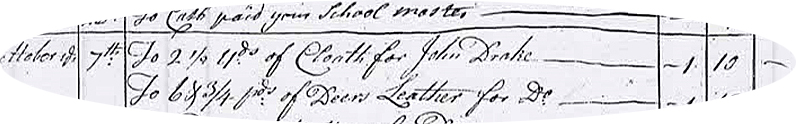 To Cash paid your School master
7th To 2 1/2 Yds of Cloath for John Drake 1 10
To 6 & 3/4 pds of Deers Leather for Do